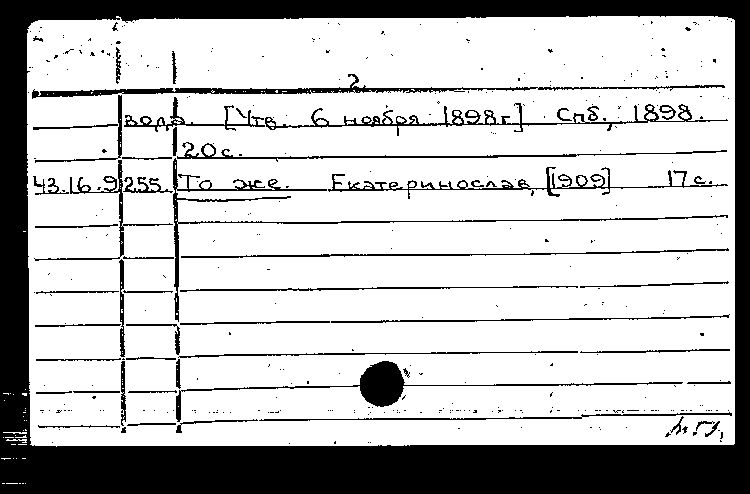 2.
вода. [Утв. 6 ноября 1898г.] Спб., 1898.
20с.
43.16.9.255. То же. Екатеринослав, [1909] 17с.